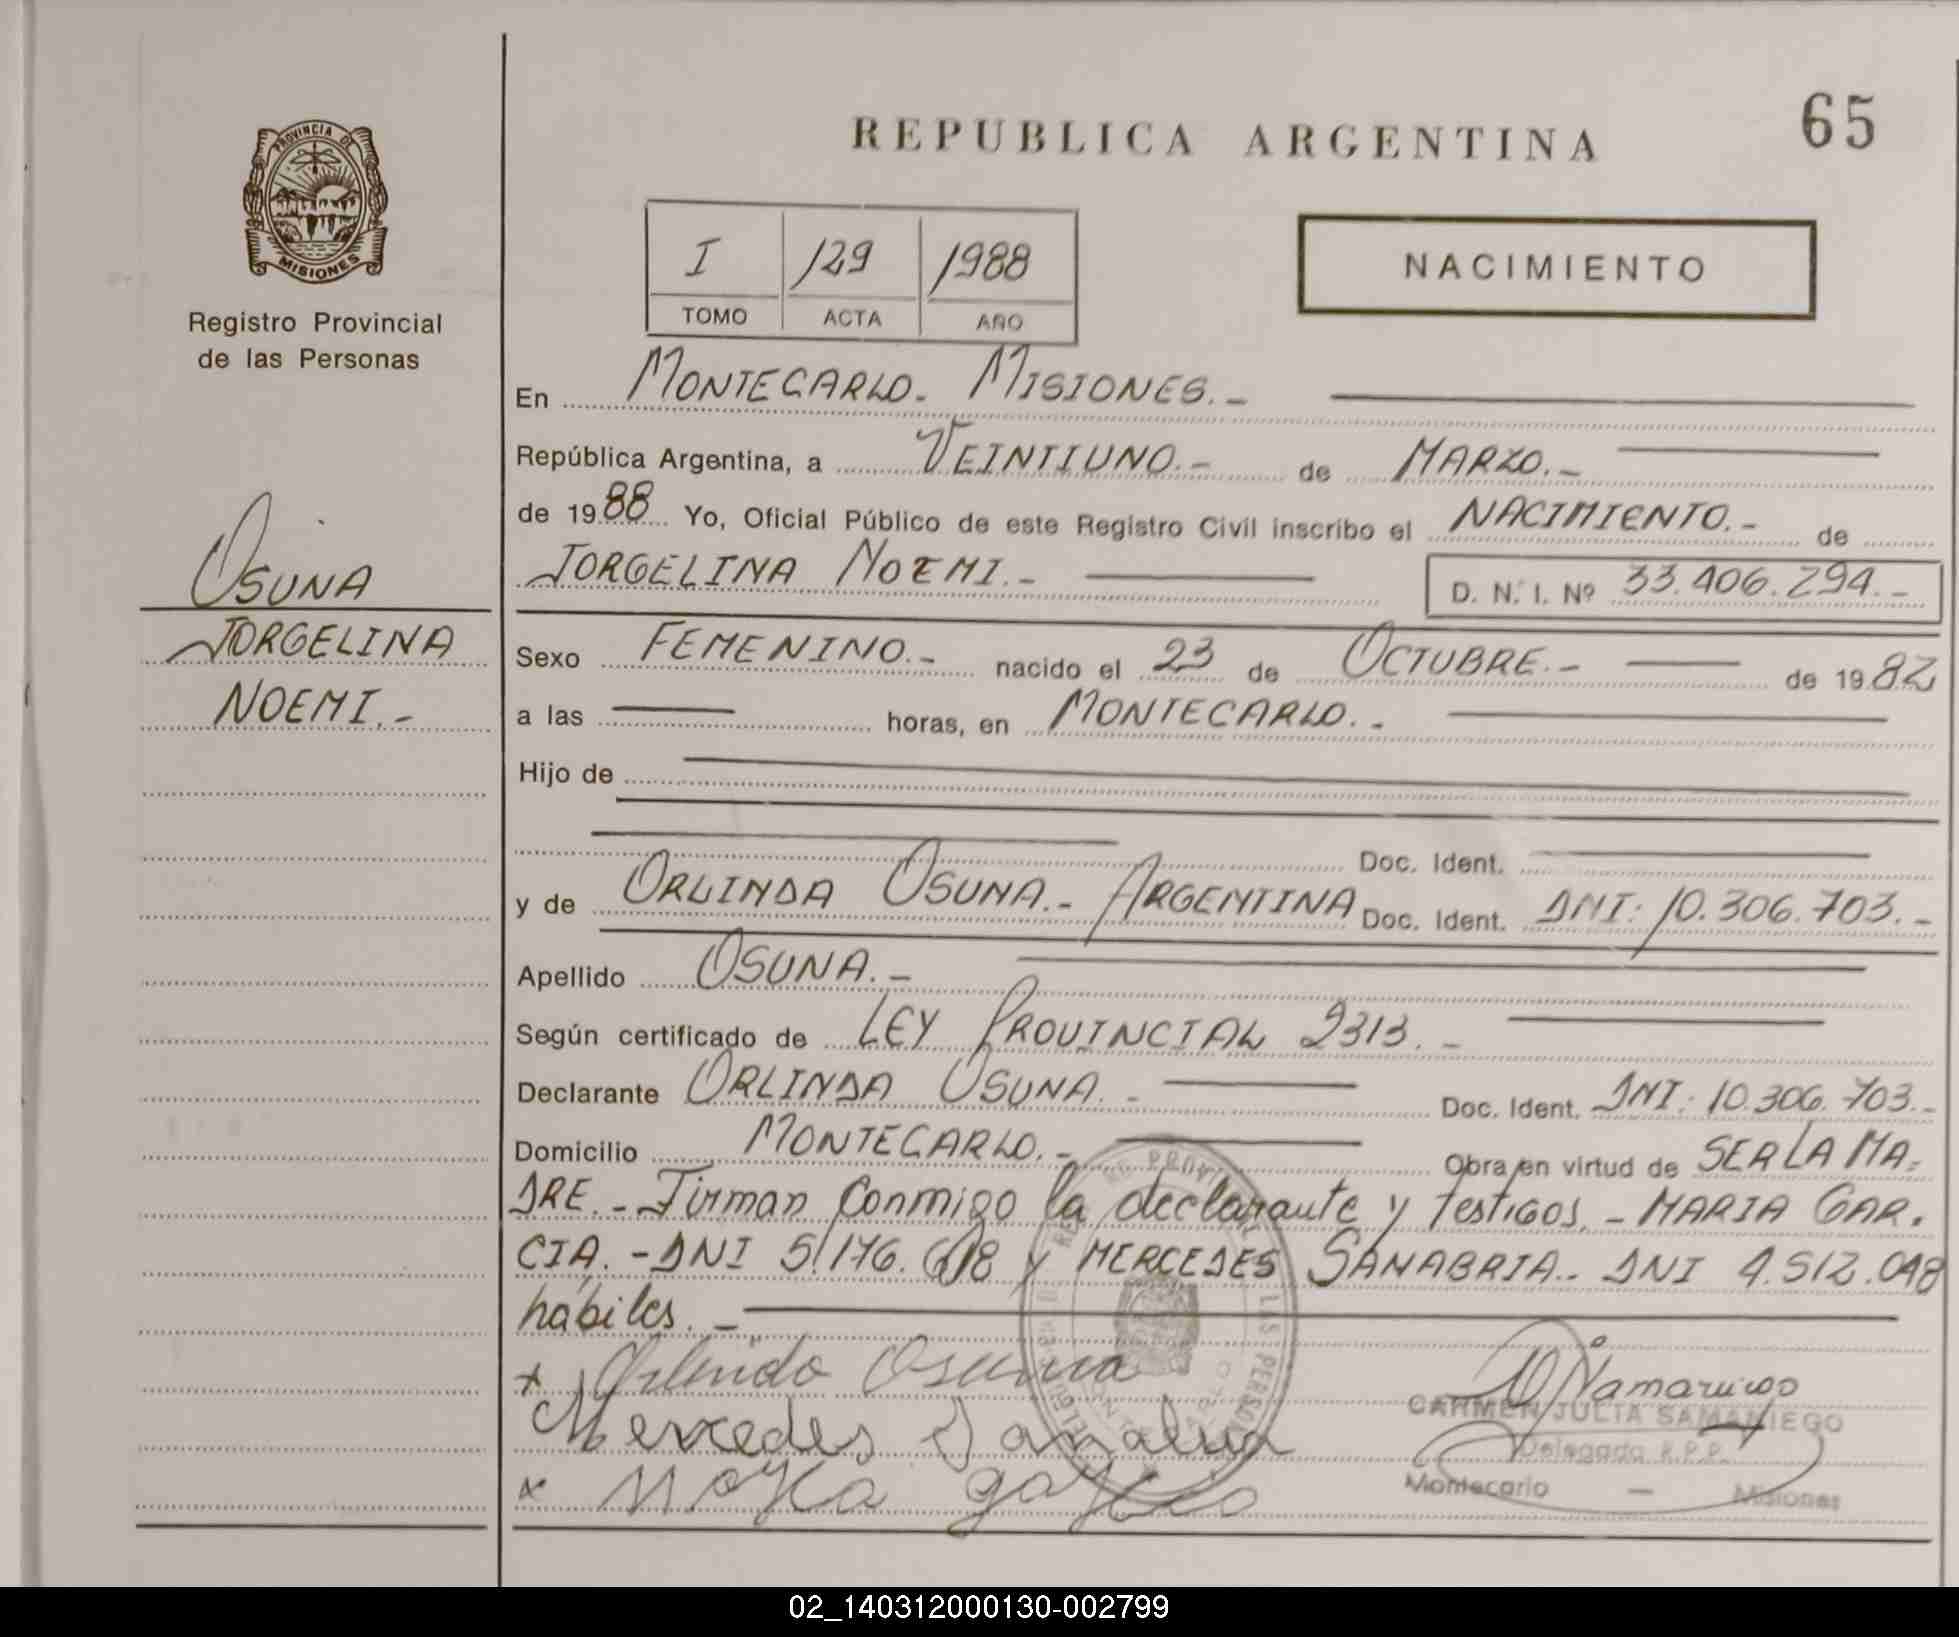 REPUBLICA ARGENTINA
65
PROVINCIA DE
MISIONES
Registro Provincial
de las Personas
I 129 1988
TOMO ACTA AÑO
NACIMIENTO
En MONTECARLO.- MISIONES.-
República Argentina, a VEINTIUNO.- de MARZO.-
de 1988 Yo, Oficial Público de este Registro Civil inscribo el NACIMIENTO.- de
JORGELINA NOEMI.- D. N. I. Nº 33.406.294.-
OSUNA
JORGELINA
NOEMI.-
Sexo FEMENINO.- nacido el 23 de OCTUBRE.- de 1982
a las horas, en MONTECARLO.-
Hijo de
Doc. Ident.
y de ORLINDA OSUNA.- ARGENTINA Doc. Ident. DNI: 10.306.703.-
Apellido OSUNA.-
Según certificado de LEY PROVINCIAL 2313.-
Declarante ORLINDA OSUNA.- Doc. Ident. DNI: 10.306.703.-
Domicilio MONTECARLO.- Obra en virtud de SER LA MA-
DRE.- Firman conmigo la declarante y testigos.- MARIA GAR-
CIA.- DNI 5.176.618 y MERCEDES SANABRIA.- DNI 4.512.048
hábiles.-
x Orlinda Osuna
Mercedes Sanabria
x
CARMEN JULIA SAMANIEGO
Delegada R.P.P.
Montecarlo - Misiones
02_140312000130-002799